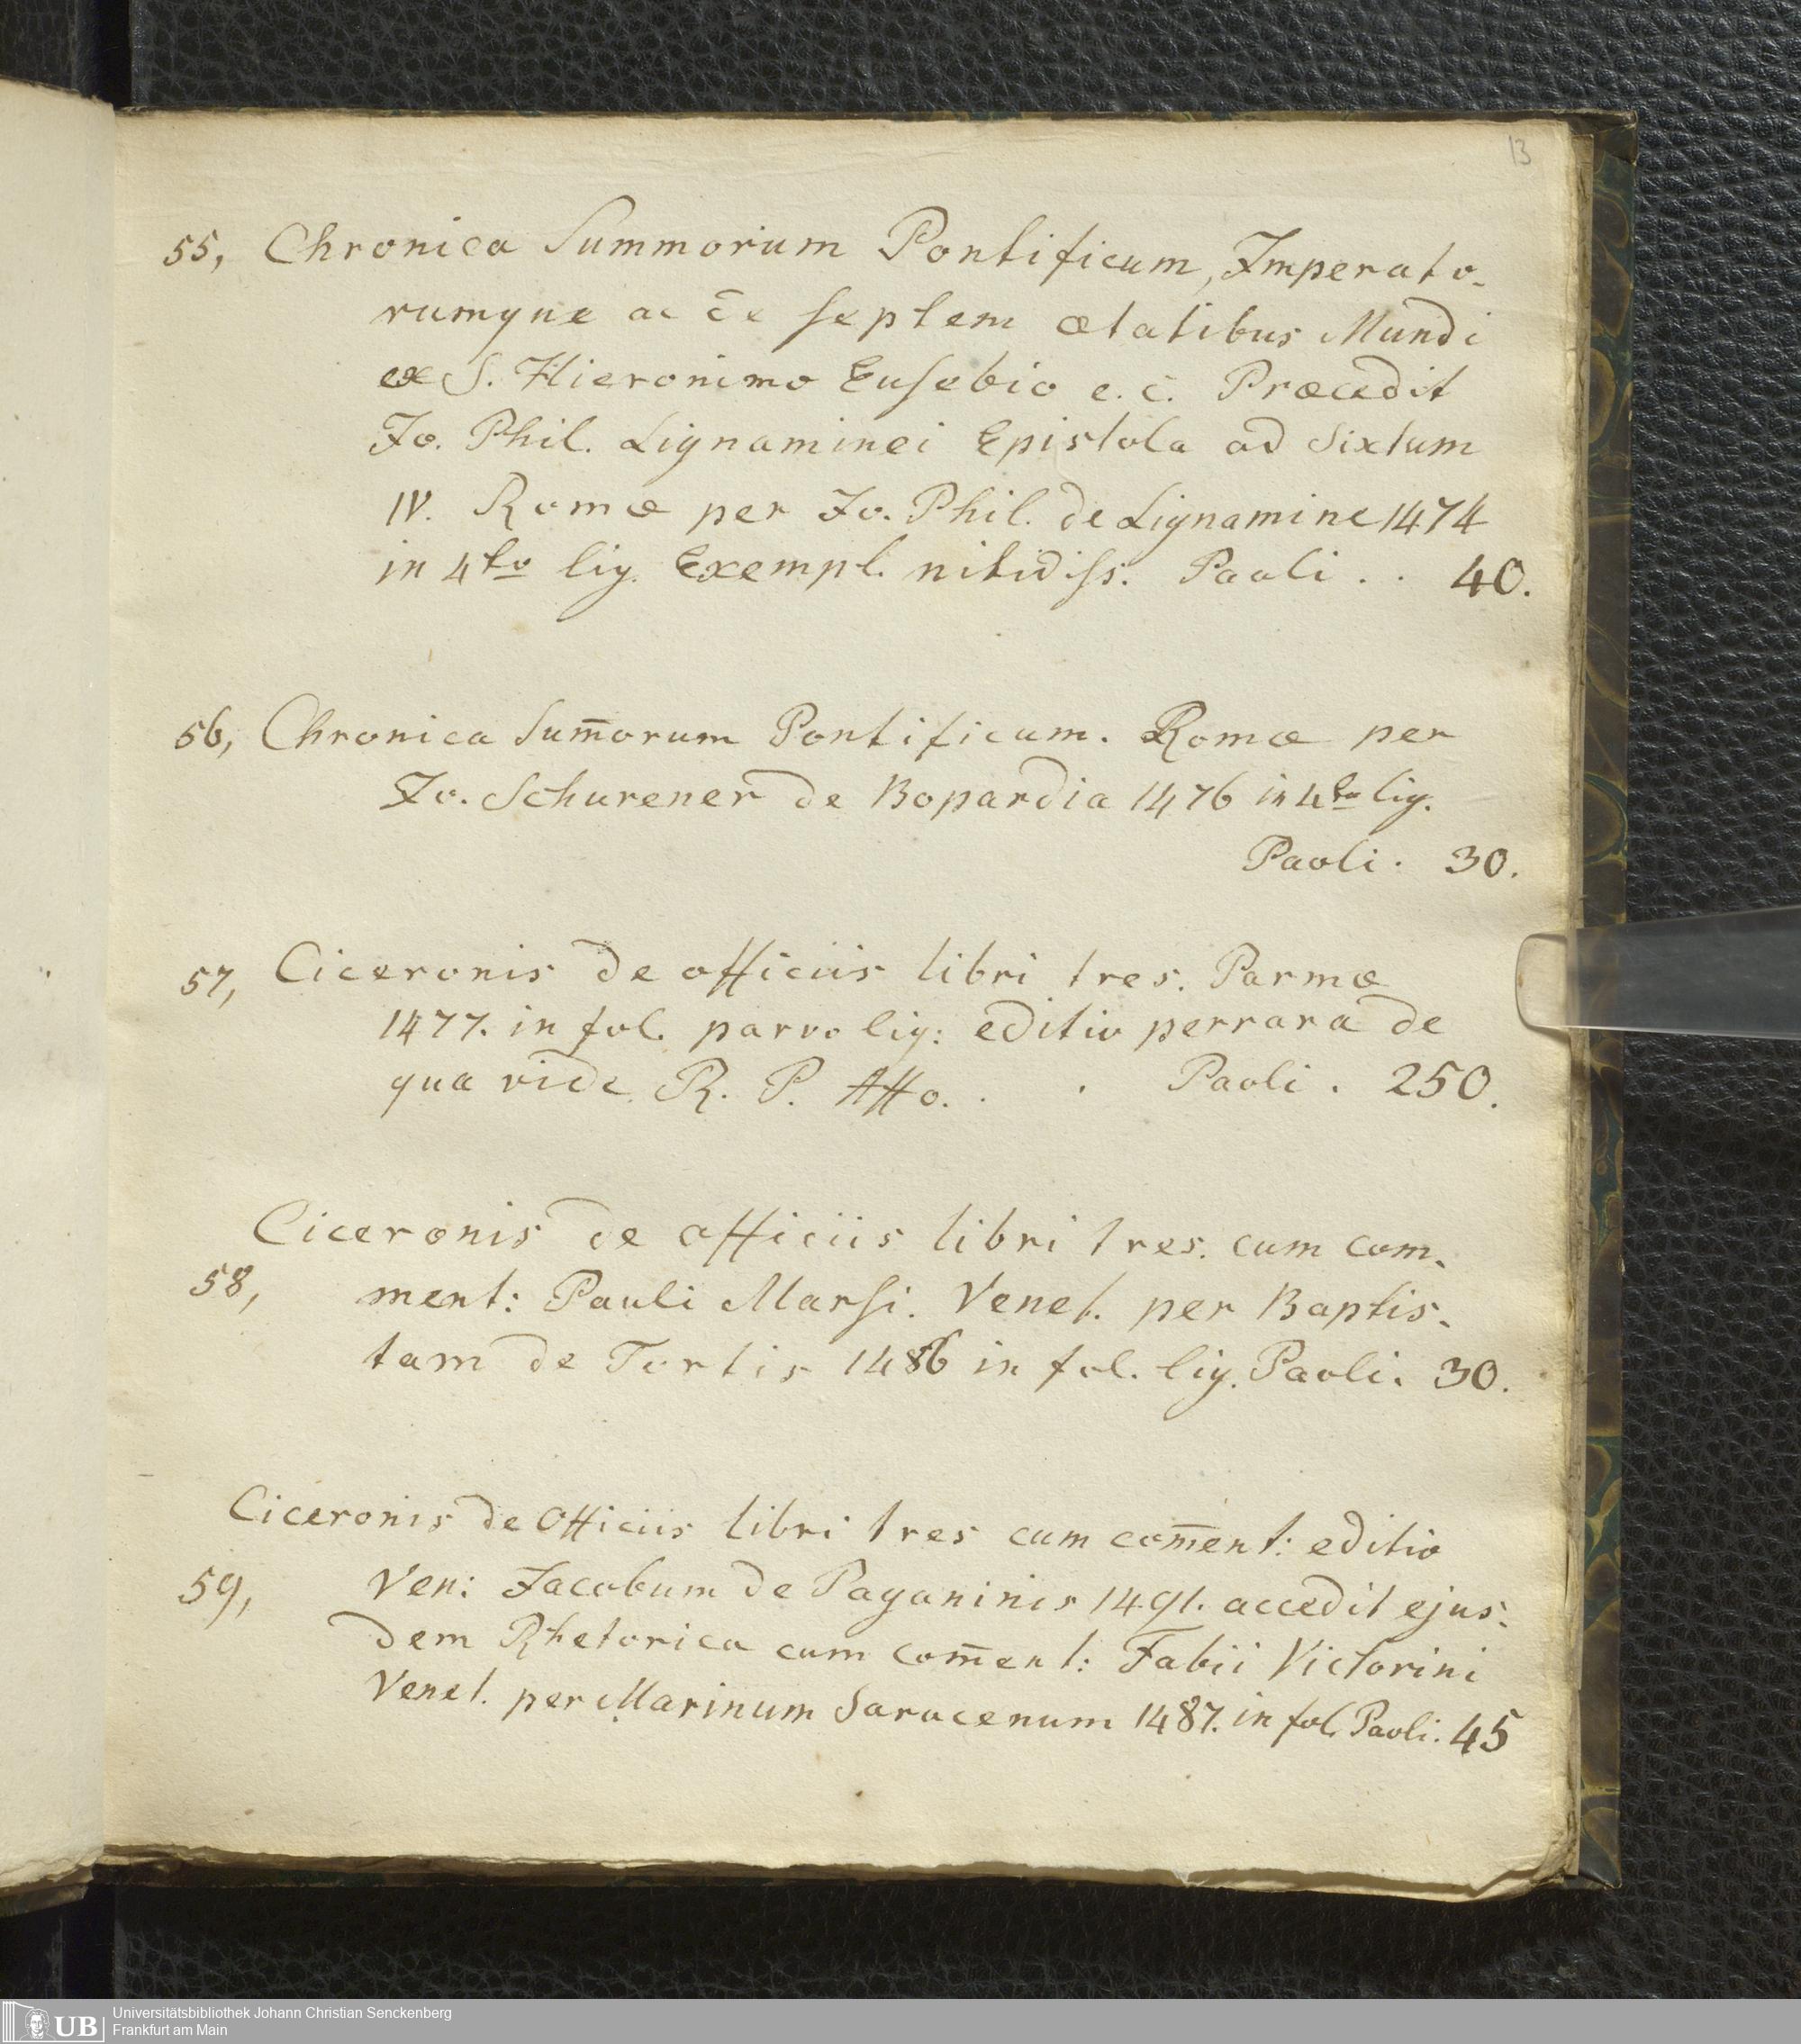 13
55, Chronica Summorum Pontificum, Imperato-
rumque ac de septem ætatibus Mundi
ex S. Hieronimo Eusebio e. c. Præcedit
Jo. Phil. Lignaminei Epistola ad Sixtum
IV. Romæ per Jo. Phil. de Lignamine 1474
in 4to lig. Exempl. nitidiss. Paoli . . 40.
56, Chronica Sum̄orum Pontificum. Romæ per
Jo. Schurener de Bopardia 1476 in 4to lig.
Paoli . 30.
57, Ciceronis de officiis libri tres. Parmæ
1477. in fol. parvo lig: editio perrara de
qua vide R. P. Affo. . . Paoli . 250.
Ciceronis de officiis libri tres. cum com-
58, ment: Pauli Marsi. Venet. per Baptis-
tam de Tortis 1486 in fol. lig. Paoli. 30.
Ciceronis de Officiis libri tres cum com̄ent: editio
59, Ven: Jacobum de Paganinis 1491. accedit ejus-
dem Rhetorica cum com̄ent: Fabii Victorini
Venet. per Marinum Saracenum 1487. in fol. Paoli. 45
UB Universitätsbibliothek Johann Christian Senckenberg
Frankfurt am Main